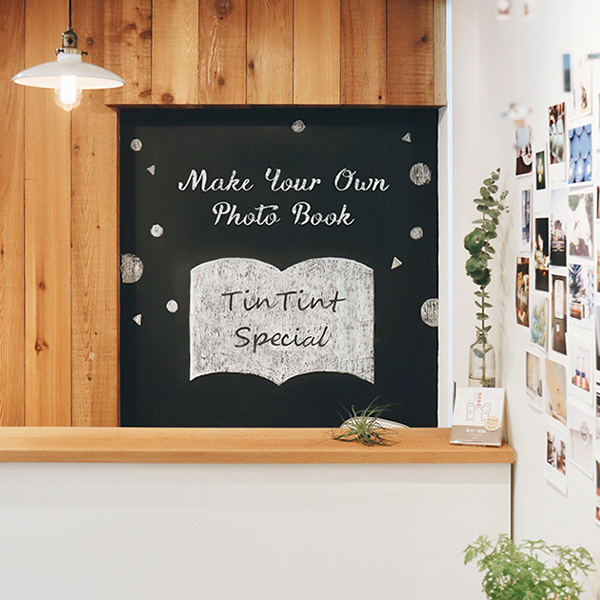 Make Your Own
Photo Book
TinTint
Special